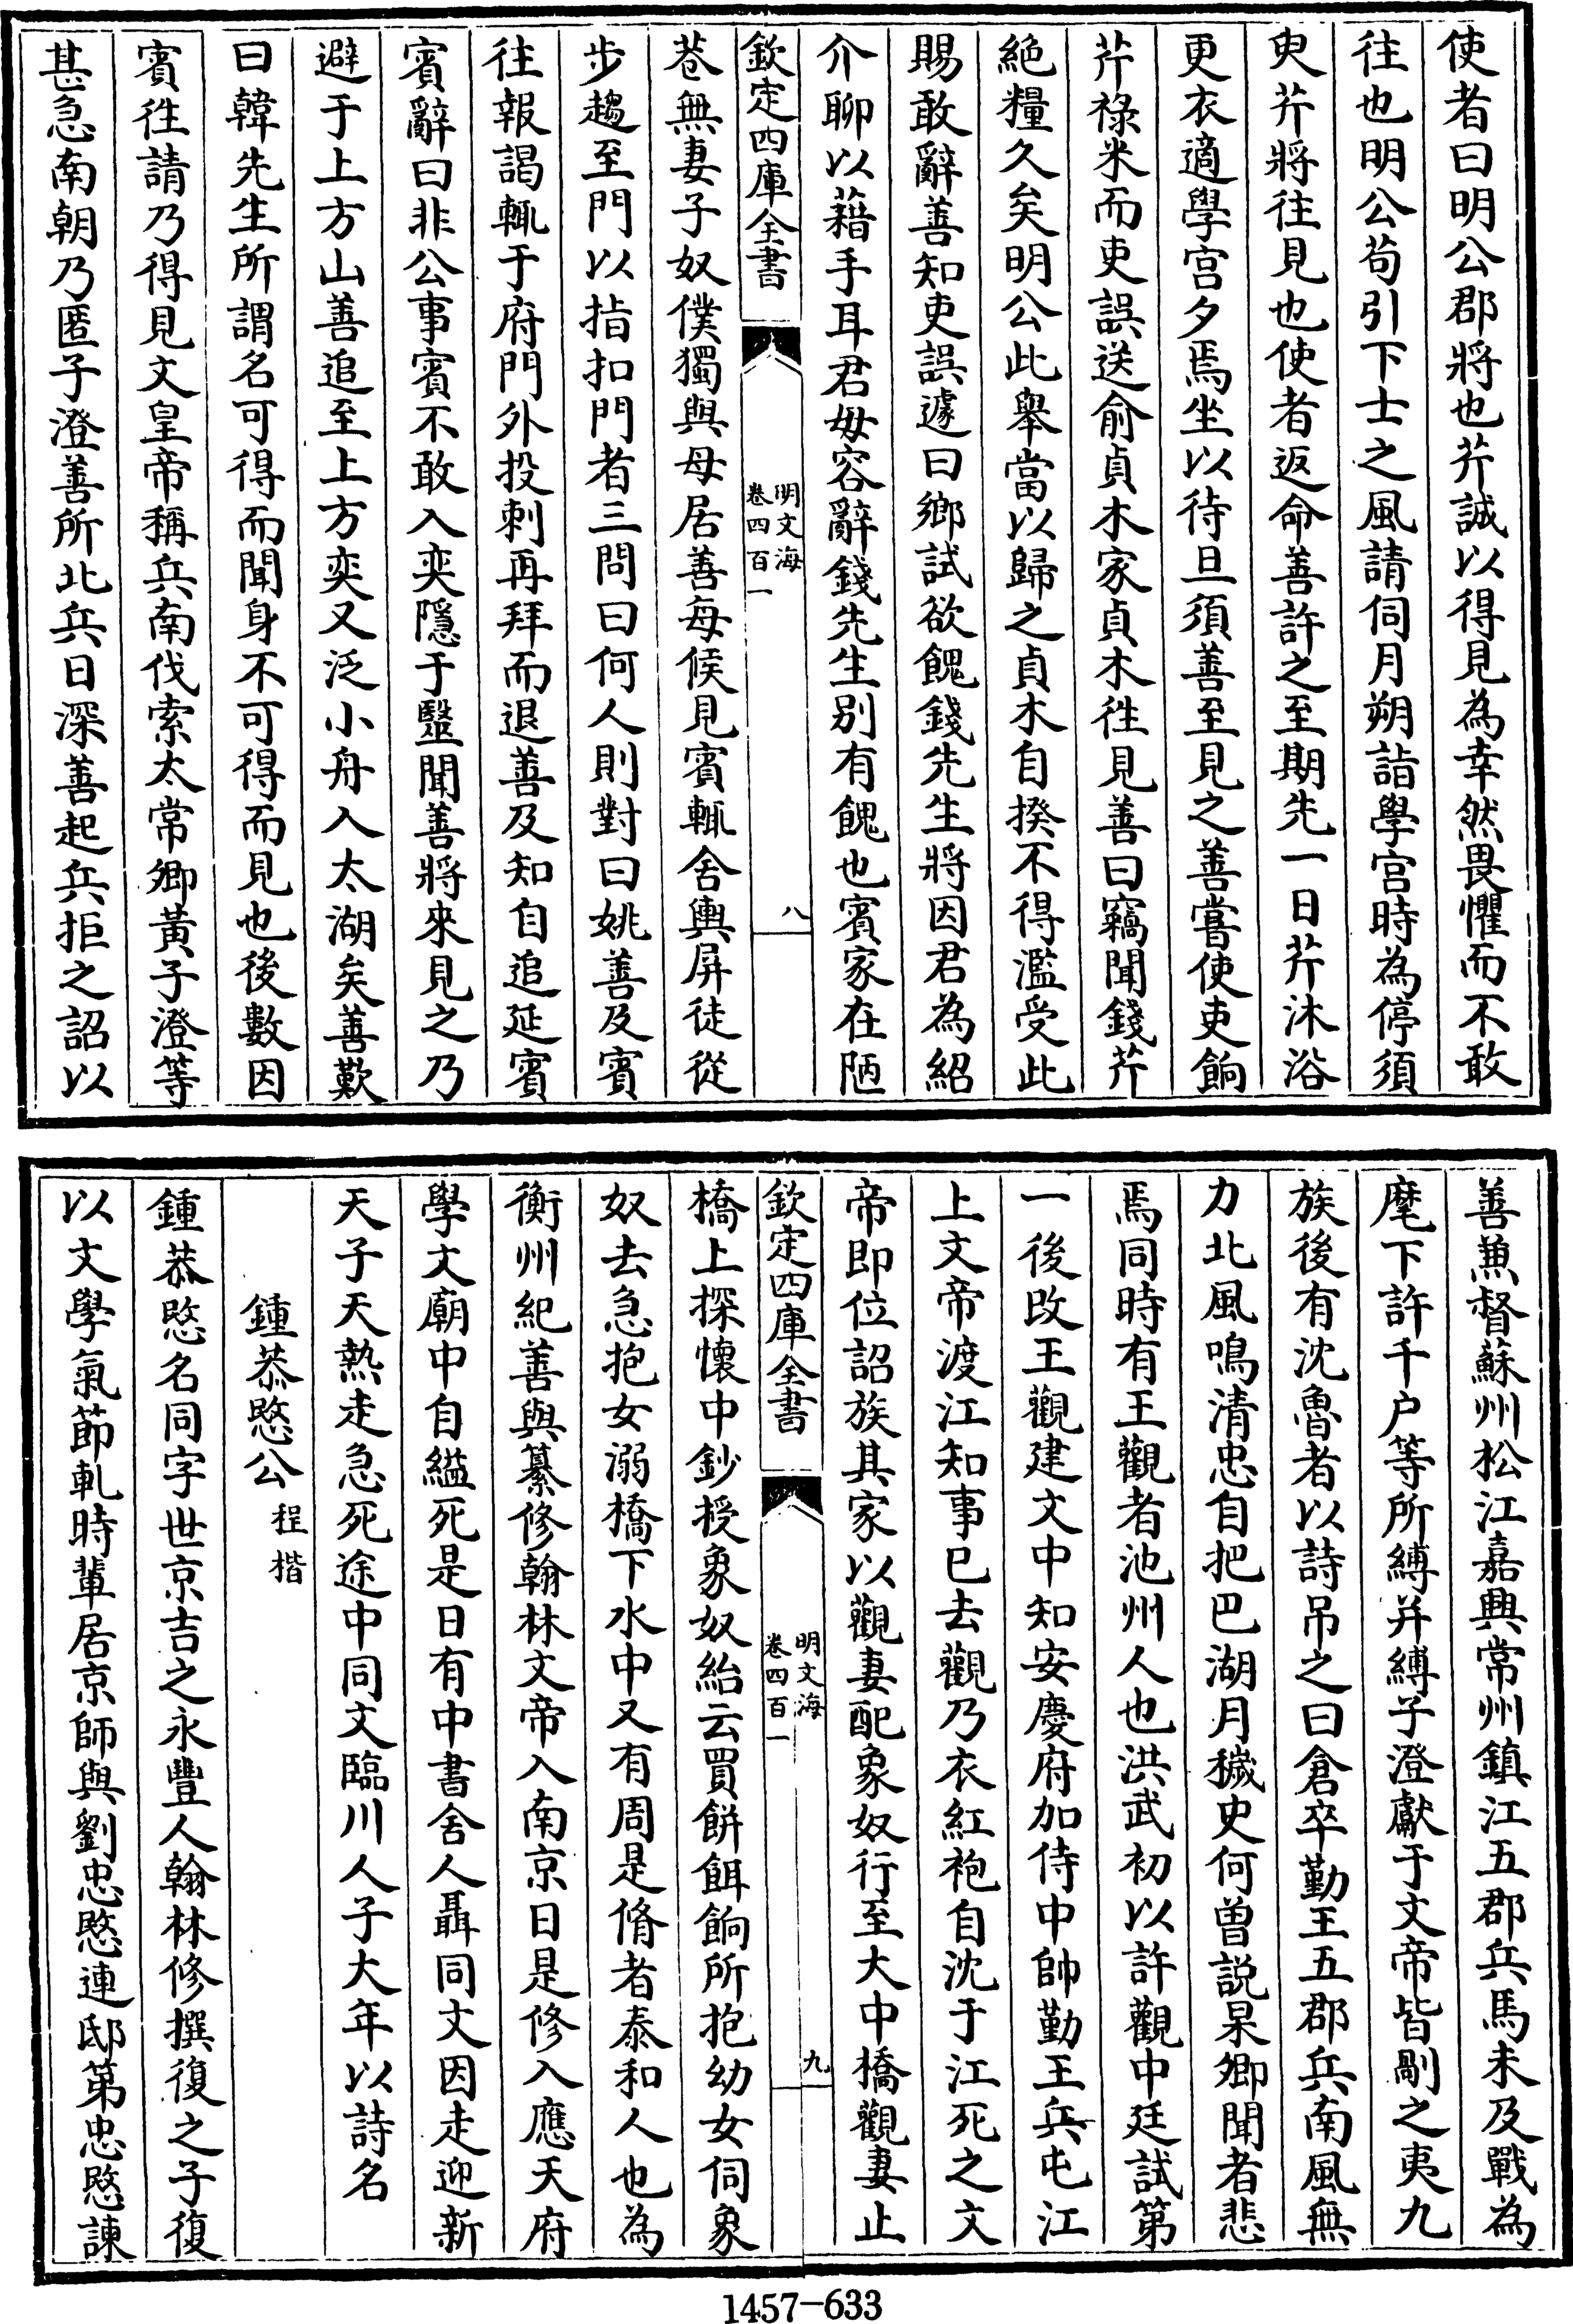 使者曰明公郡將也芥誠以得見為幸然畏懼而不敢
往也明公苟引下士之風請伺月朔詣學宫時為停須
臾芥將往見也使者返命善許之至期先一日芥沐浴
更衣適學宫夕焉坐以待旦須善至見之善嘗使吏餉
芥祿米而吏誤送俞貞木家貞木徃見善曰竊聞錢芥
絶糧久矣明公此舉當以歸之貞木自揆不得濫受此
賜敢辭善知吏誤遽曰鄉試欲餽錢先生將因君為紹
介聊以藉手耳君毋容辭錢先生别有餽也賓家在陋
欽定四庫全書
明文海
卷四百一
八
巷無妻子奴僕獨與母居善每候見賓輒舍輿屏徒從
步趨至門以指扣門者三問曰何人則對曰姚善及賓
往報謁輒于府門外投刺再拜而退善及知自追延賓
賓辭曰非公事賓不敢入奕隱于毉聞善將來見之乃
避于上方山善追至上方奕又泛小舟入太湖矣善歎
曰韓先生所謂名可得而聞身不可得而見也後數因
賓徃請乃得見文皇帝稱兵南伐索太常卿黃子澄等
甚急南朝乃匿子澄善所北兵日深善起兵拒之詔以
善兼督蘇州松江嘉興常州鎮江五郡兵馬未及戰為
麾下許千户等所縛并縛子澄獻于文帝皆剮之夷九
族後有沈魯者以詩吊之曰倉卒勤王五郡兵南風無
力北風鳴清忠自把巴湖月穢史何曽説杲卿聞者悲
焉同時有王觀者池州人也洪武初以許觀中廷試第
一後改王觀建文中知安慶府加侍中帥勤王兵屯江
上文帝渡江知事已去觀乃衣紅袍自沈于江死之文
帝即位詔族其家以觀妻配象奴行至大中橋觀妻止
欽定四庫全書
明文海
卷四百一
九
橋上探懷中鈔授象奴紿云買餅餌餉所抱幼女伺象
奴去急抱女溺橋下水中又有周是脩者泰和人也為
衡州紀善與纂修翰林文帝入南京日是修入應天府
學文廟中自縊死是日有中書舍人聶同文因走迎新
天子天熱走急死途中同文臨川人子大年以詩名
鍾恭愍公 程楷
鍾恭愍名同字世京吉之永豐人翰林修撰復之子復
以文學氣節軋時輩居京師與劉忠愍連邸第忠愍諫
1457-633